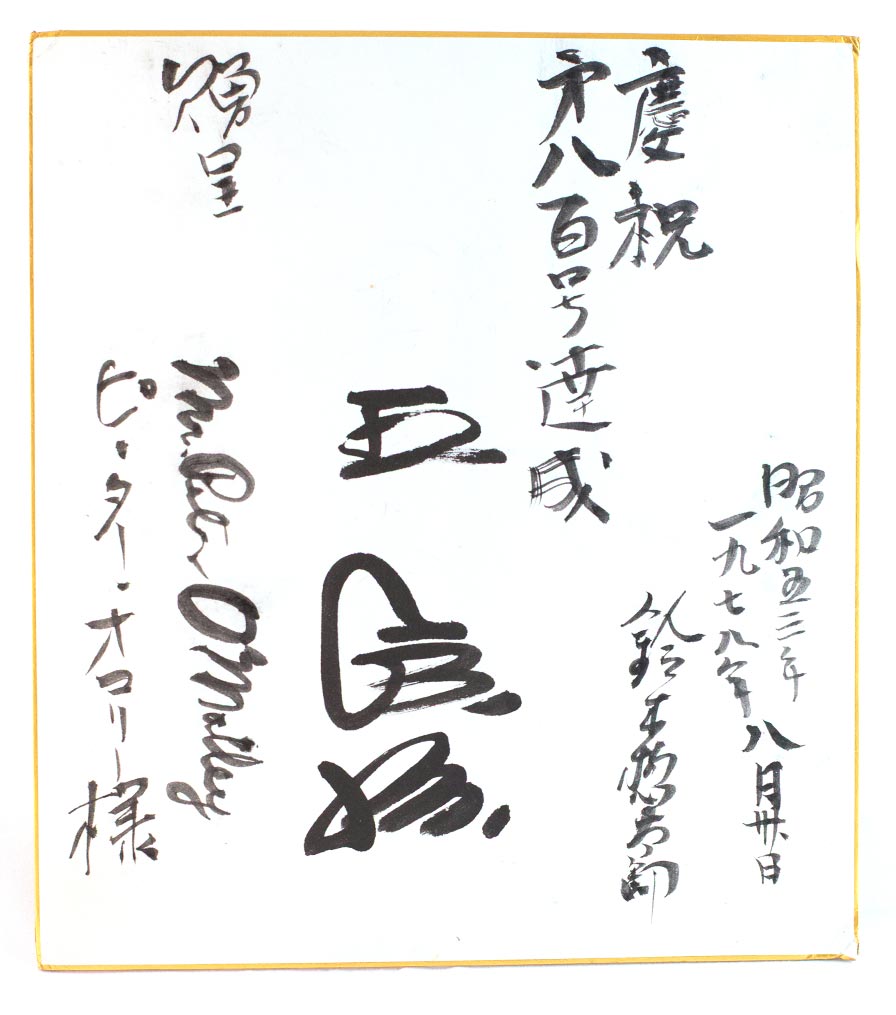 慶祝
第八百号達成
昭和五三年
一九七八年八月卅日
鈴木惣太郎
王貞治
贈呈
Mr. Peter O'Malley
ピーター・オマリー様